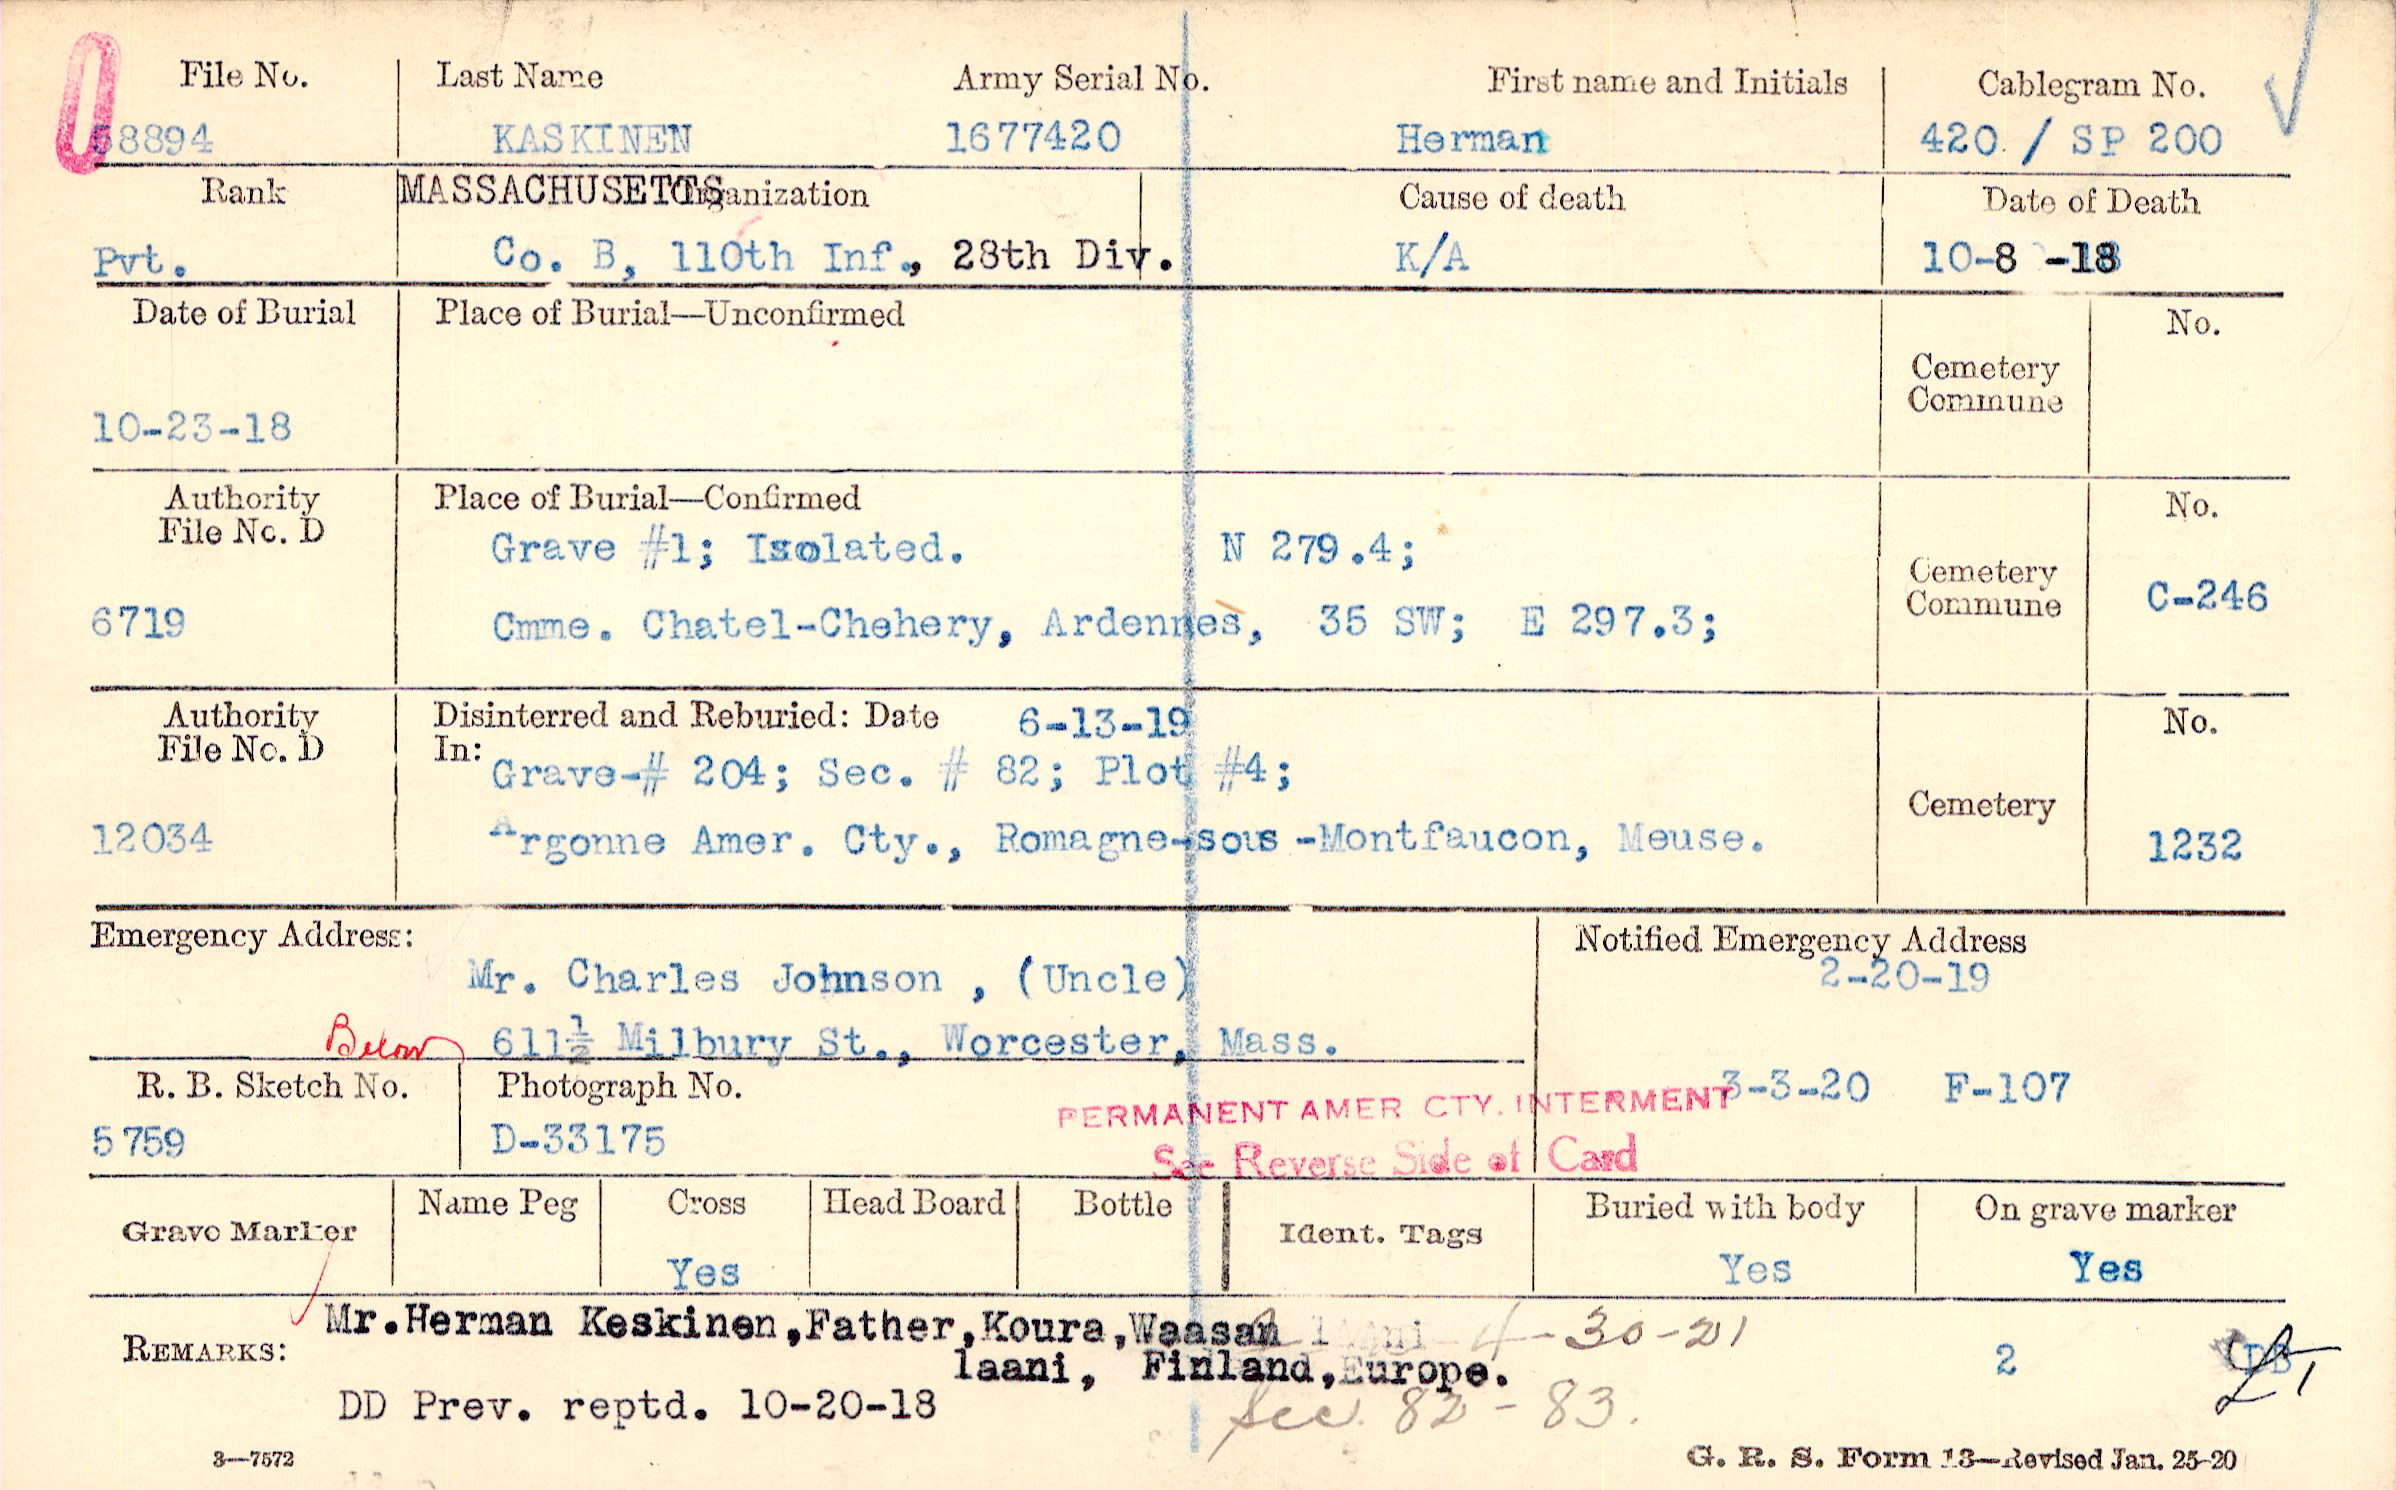 File No. Last Name Army Serial No. First name and Initials Cablegram No.
58894 KASKINEN 1677420 Herman 420 / SP 200
Rank MASSACHUSETTS Organization Cause of death Date of Death
Pvt. Co. B, 110th Inf., 28th Div. K/A 10-8 -18
Date of Burial Place of Burial—Unconfirmed No.
Cemetery
Commune
10-23-18
Authority Place of Burial—Confirmed No.
File No. D
Grave #1; Isolated. N 279.4;
Cemetery
Commune C-246
6719 Cmme. Chatel-Chehery, Ardennes, 35 SW; E 297.3;
Authority Disinterred and Reburied: Date 6-13-19 No.
File No. D In:
Grave-# 204; Sec. # 82; Plot #4;
Cemetery
12034 Argonne Amer. Cty., Romagne-sous-Montfaucon, Meuse. 1232
Emergency Address: Notified Emergency Address
Mr. Charles Johnson , (Uncle) 2-20-19
Below 611½ Milbury St., Worcester, Mass.
R. B. Sketch No. Photograph No. 3-3-20 F-107
PERMANENT AMER CTY. INTERMENT
5759 D-33175
See Reverse Side of Card
Grave Marker Name Peg Cross Head Board Bottle Ident. Tags Buried with body On grave marker
Yes Yes Yes
Mr.Herman Keskinen,Father,Koura,Waasan 4-30-21
REMARKS: laani, Finland,Europe. 2
DD Prev. reptd. 10-20-18 Sec. 82-83.
3—7572 G. R. S. Form 13—Revised Jan. 25-20